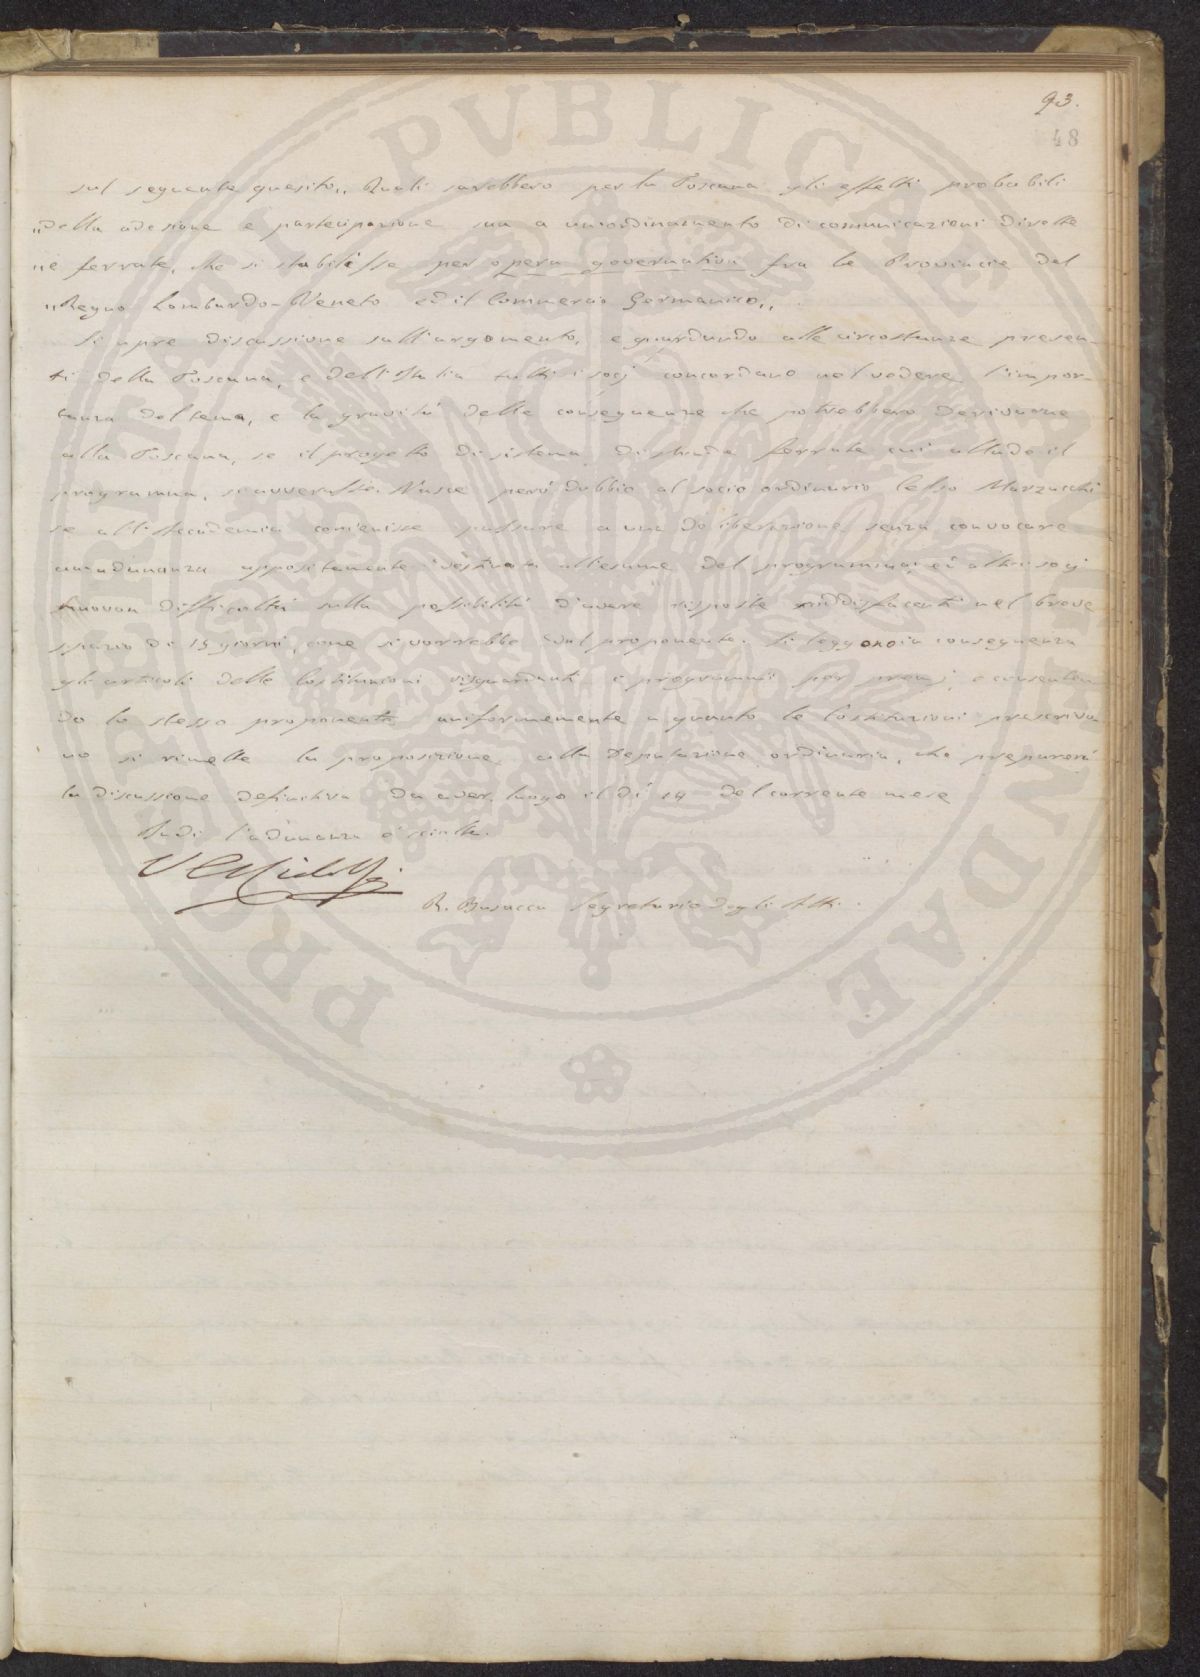 93.
48
sul seguente quesito „ Quali sarebbero per la Toscana gli effetti probabili
„ della adesione e partecipazione sua a un ordinamento di comunicazioni dirette
„ e ferrate, che si stabilisse per opera governativa fra le Provincie del
„ Regno Lombardo-Veneto ed il Commercio Germanico „
Si apre discussione sull'argomento, e guardando alle circostanze presen-
ti della Toscana, e dell'Italia tutti i socj concordano nel vedere l'impor-
tanza del tema, e la gravità delle conseguenze che potrebbero derivarne
alla Toscana, se il progetto di sistema di strade ferrate cui allude il
programma, si avverasse. Nasce però dubbio al socio ordinario Celso Marzucchi
se all'Accademia convenisse passare a una deliberazione senza convocare
un'adunanza appositamente destinata all'esame del programma; ed altri socj
muovon difficoltà sulla possibilità d'avere risposte soddisfacenti nel breve
spazio di 15 giorni, come si vorrebbe dal proponente. Si leggono in conseguenza
gli articoli delle Costituzioni risguardanti i programmi per premj, e consenten-
do lo stesso proponente uniformemente a quanto le Costituzioni prescrivo-
no si rimette la proposizione alla Deputazione ordinaria, che preparerà
la discussione definitiva da aver luogo il dì 14 del corrente mese
Indi l'adunanza è sciolta.
R. Busacca Segretario degli Atti.
PRO BENI PUBLICAE